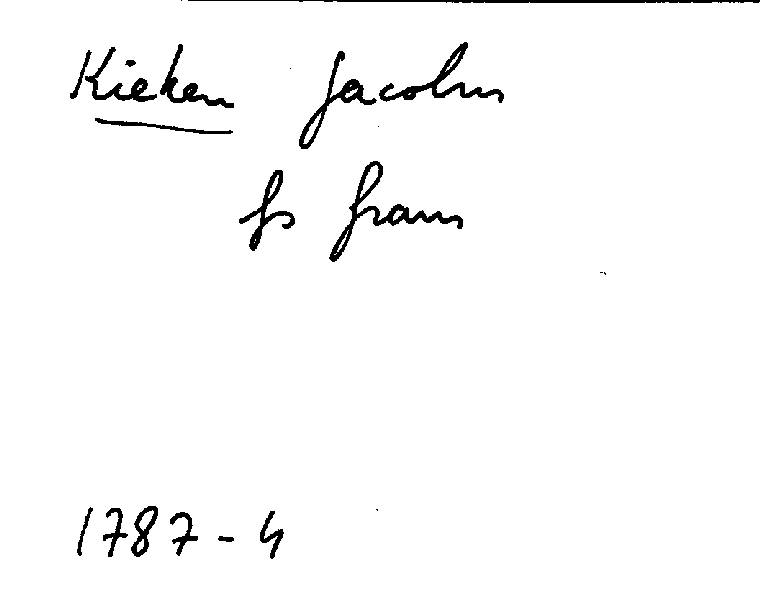 Kieken Jacobus
fs frans
1787-4